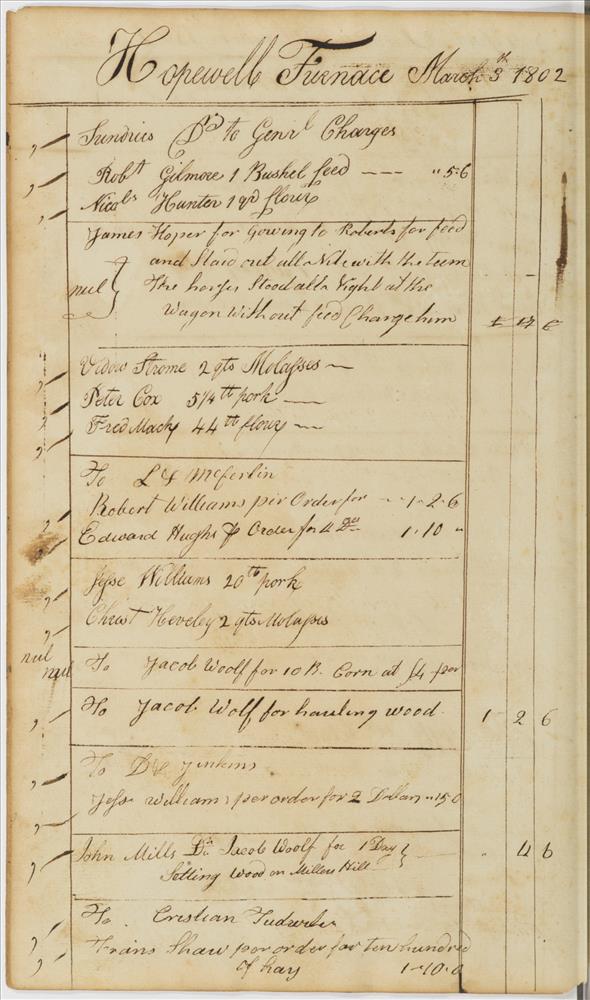 Hopewell Furnace March 3th 1802
Sundries Drd to Genrl Charges
Robt Gilmore 1 Bushel feed — — — " 5-6
Nicols Hunter 1 qrd flour
James Hoper for Gowing to Roberts for feed
and Staid out all a Nite with the teem
nul } the horses Stood all a Night at the
Wagon without feed Charge him
Widow Strome 2 qts Molasses —
Peter Cox 51/4 th pork —
Fred Mack 44 th flour —
To L & Mcferlin
Robert Williams per Order for - - 1-2-6
Edward Hughs Order for 4 1-10 "
Jesse Williams 20 th pork
Christ Heveley 2 qts Molasses
nul nul To Jacob Woolf for 10 B. Corn at per
To Jacob Wolf for hauling wood. 1 - 2 6
To Jinkins
Jesse Williams per order for 2 Dollars " 15-0
John Mills Dr Jacob Woolf for 1 Day } " 4 6
Setting Wood on Millers Hill
To Cristian
Shaw per order for ten hundred
of hay 1-10-0